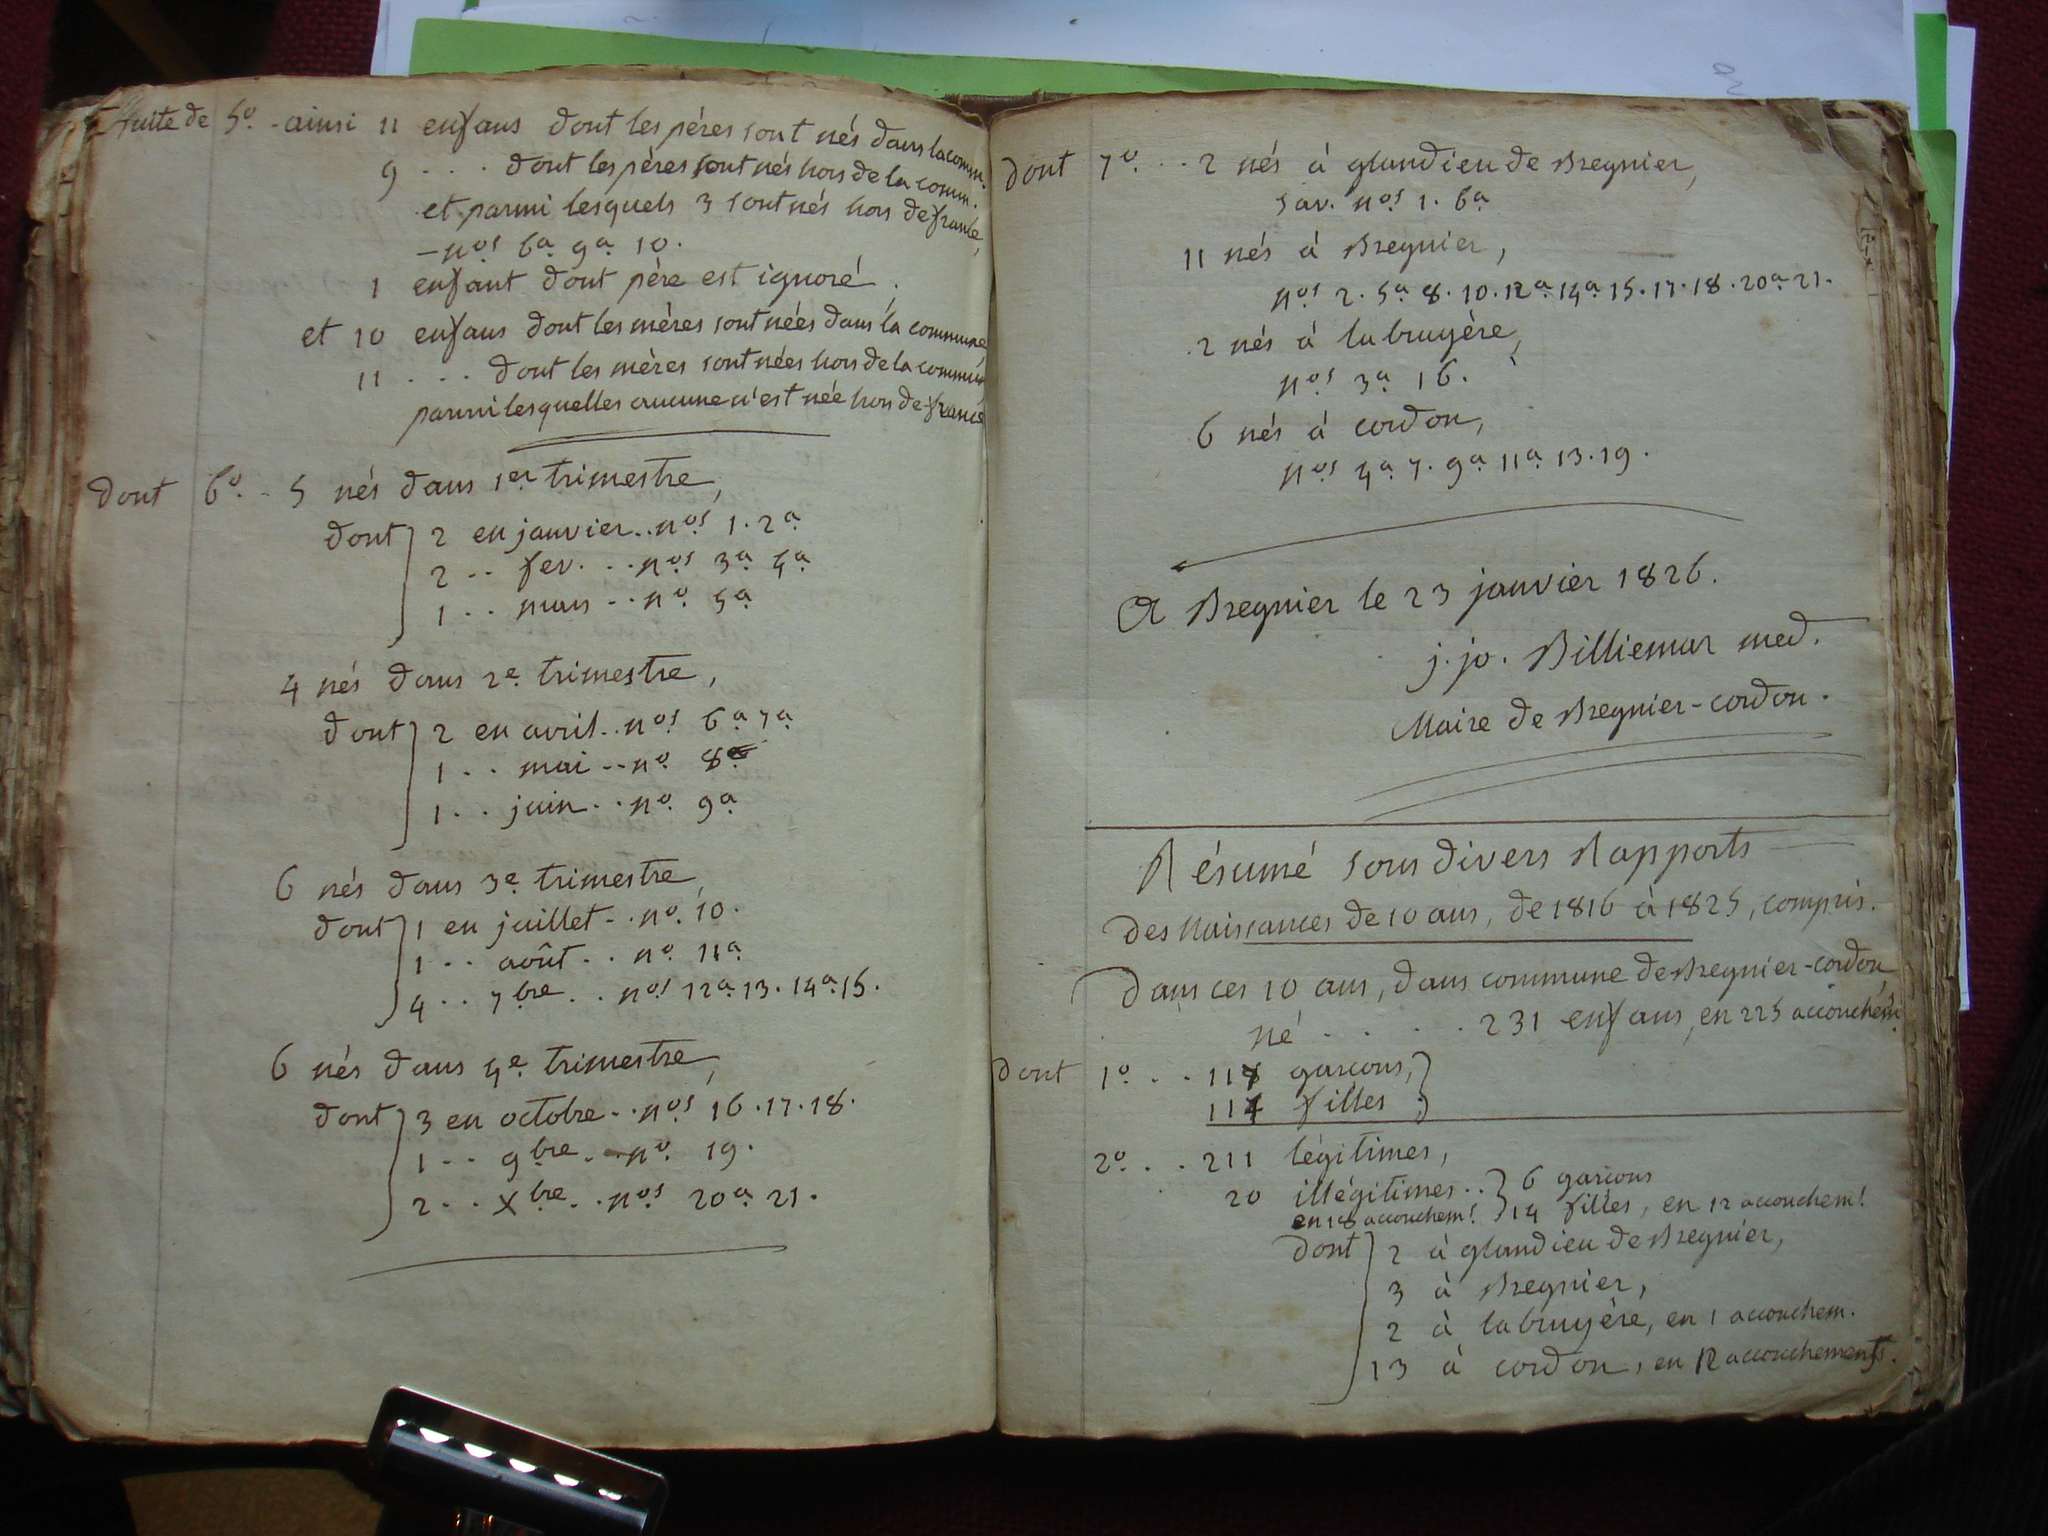 suite de 5º. - ainsi 11 enfans dont les pères sont nés dans la comm.
9 . . . dont les pères sont nés hors de la comm.
et parmi lesquels 3 sont nés hors de france,
- nos 6a 9a 10.
1 enfant dont père est ignoré.
et 10 enfans dont les mères sont nées dans la commune
11 . . . dont les mères sont nées hors de la commune
parmi lesquelles aucune n'est née hors de france
dont 6º. - 5 nés dans 1er trimestre,
dont 2 en janvier.. nos 1. 2a
2 .. fev. .. nos 3a 4a
1 .. mars .. nº 5a
4 nés dans 2e trimestre,
dont 2 en avril.. nos 6a 7a
1 .. mai .. nº 8
1 .. juin .. nº 9a
6 nés dans 3e trimestre,
dont 1 en juillet .. nº. 10.
1 .. août .. nº 11a
4 .. 7bre .. nos 12a 13. 14a 15.
6 nés dans 4e trimestre,
dont 3 en octobre .. nos 16. 17. 18.
1 .. 9bre .. nº 19.
2 .. Xbre .. nos 20a 21.
dont 7º. .. 2 nés à glandieu de Bregnier,
sav. nos 1. 6a
11 nés à Bregnier,
nos 2. 5a 8. 10. 12a 14a 15. 17. 18. 20a 21.
2 nés à la bruyère,
nos 3a 16.
6 nés à cordon,
nos 4a 7. 9a 11a 13. 19.
A Bregnier le 23 janvier 1826.
j. jo. Billiemar med.
Maire de Bregnier-cordon.
Résumé sous divers Rapports
des Naissances de 10 ans, de 1816 à 1825, compris.
Dans ces 10 ans, dans commune de Bregnier-cordon,
né . . . . . 231 enfans, en 225 accouchem.ts
dont 1º. .. garçons,
filles.
2º. .. 211 légitimes,
20 illégitimes .. 6 garçons
en accouchem.t 14 filles, en 12 accouchem.t
dont 2 à glandieu de Bregnier,
3 à Bregnier,
2 à la bruyère, en 1 accouchem.
13 à cordon, en 12 accouchements.